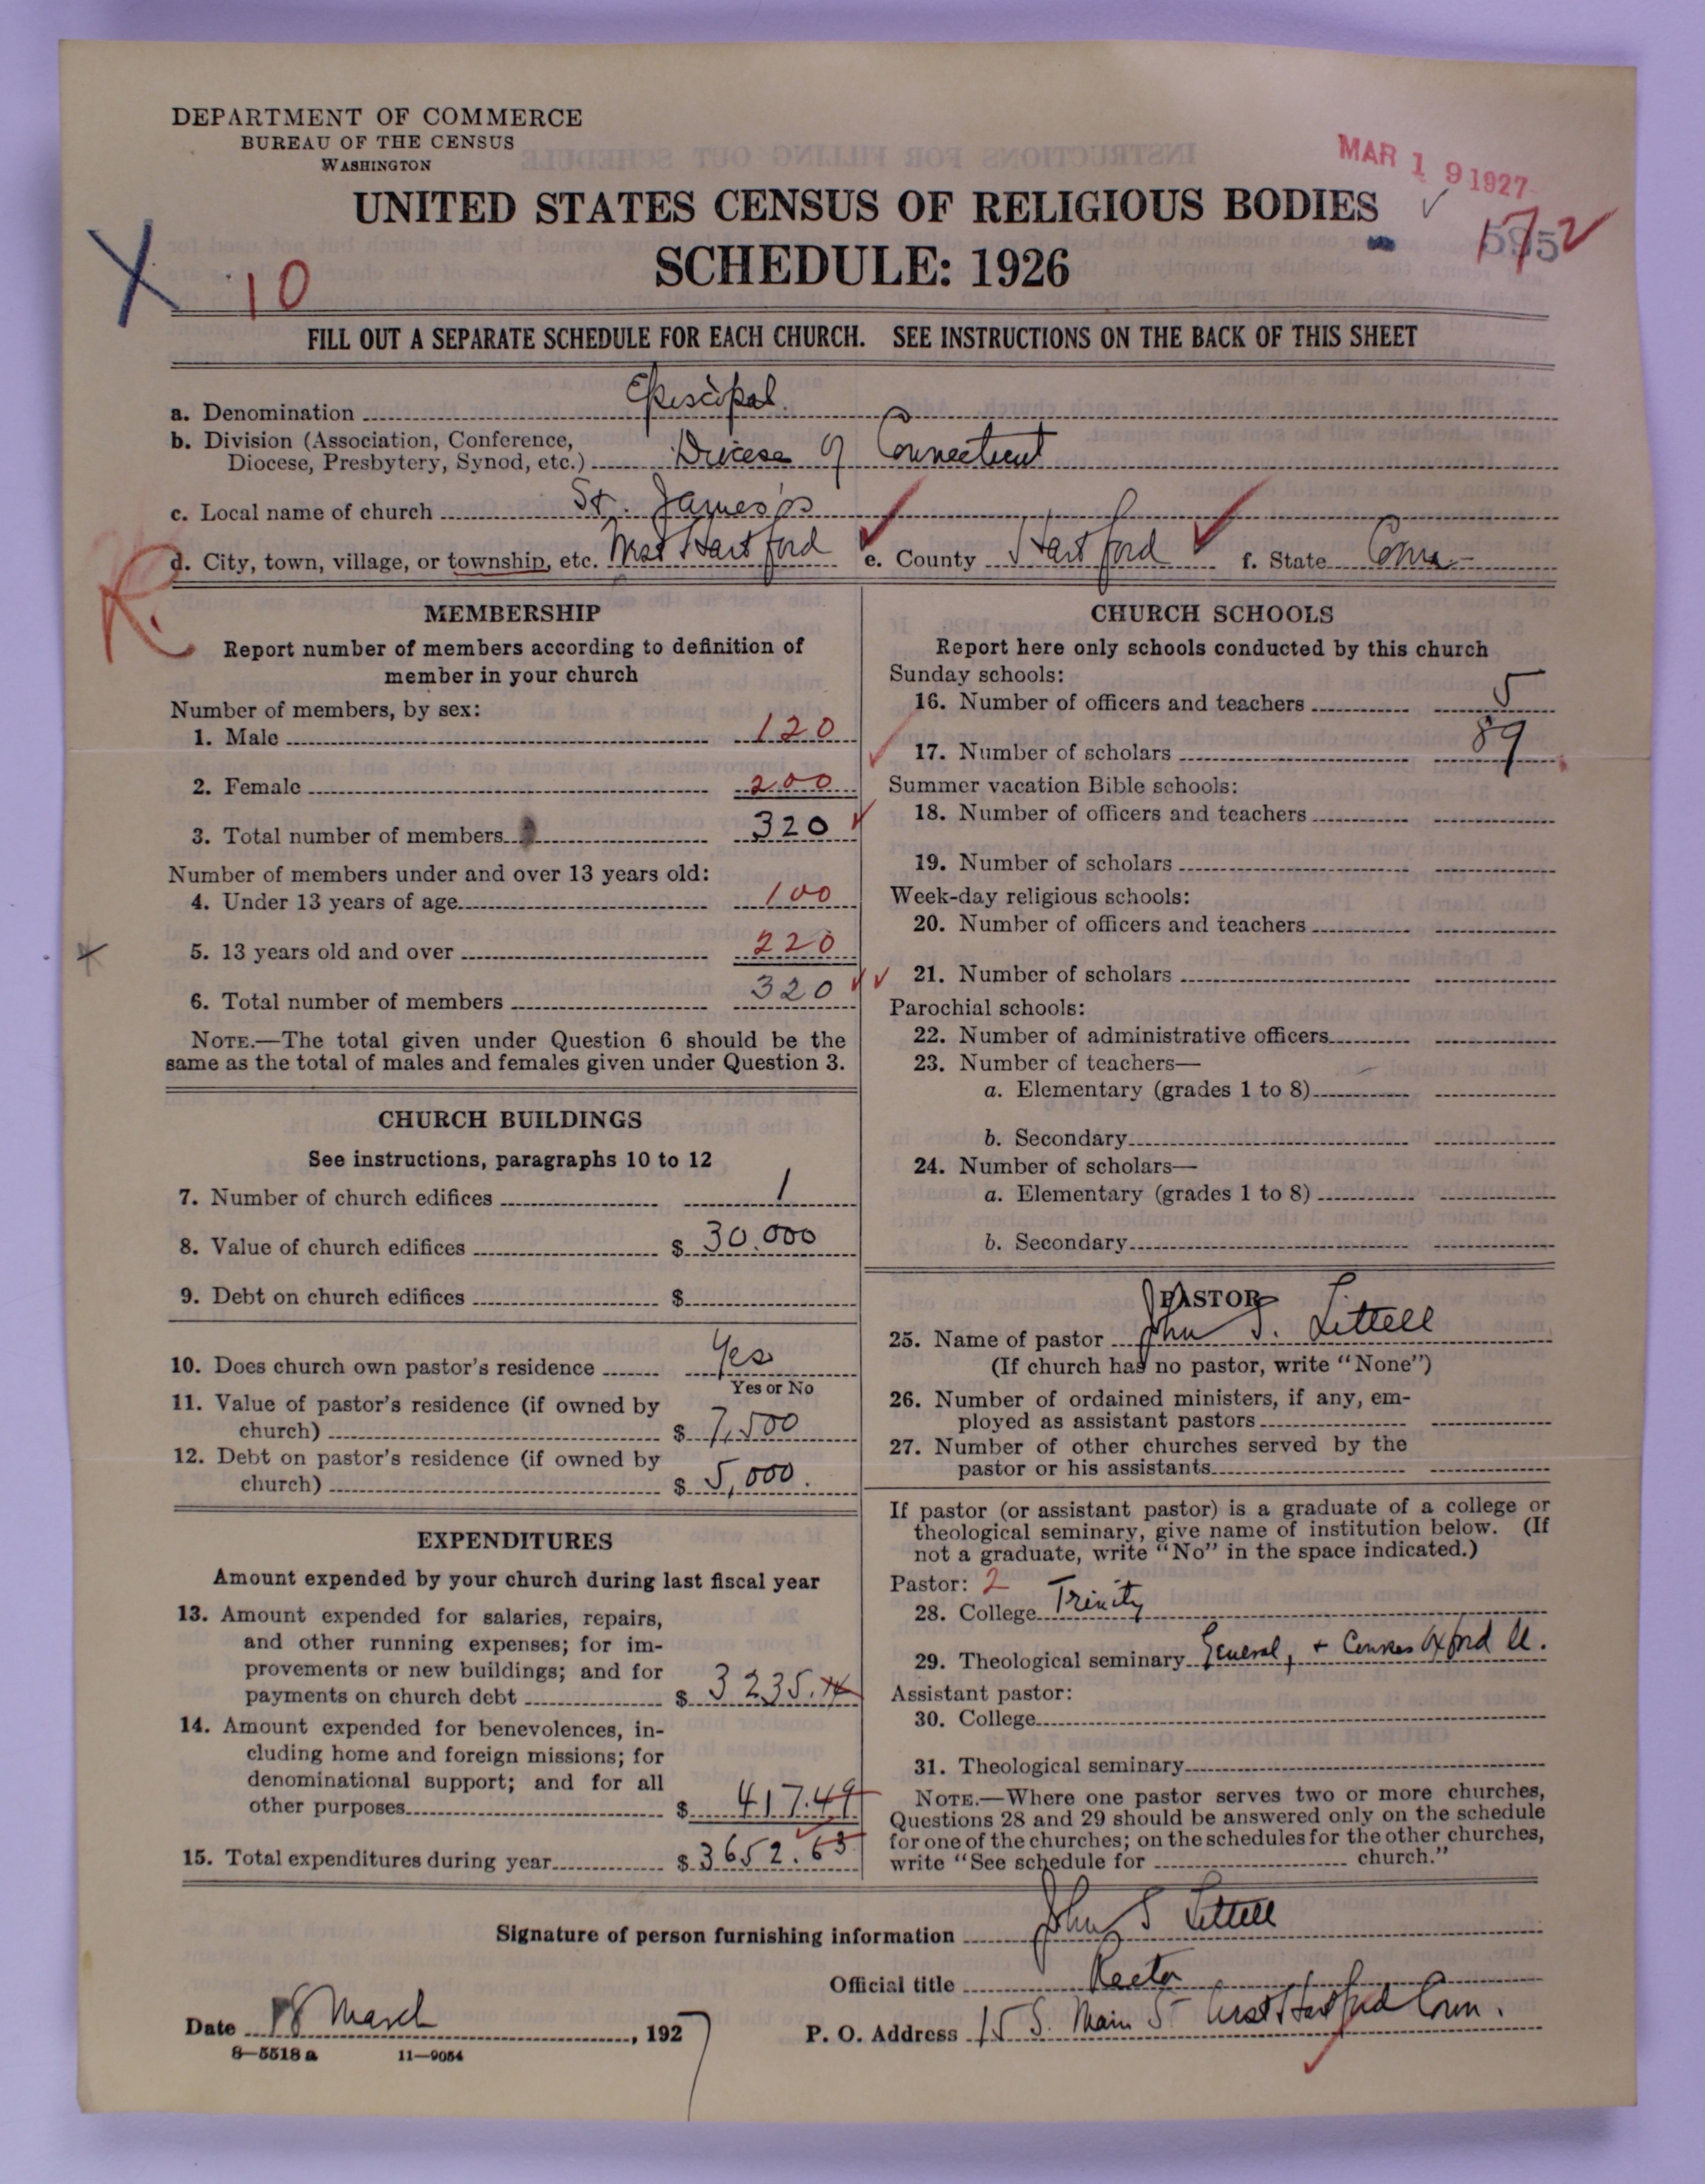 DEPARTMENT OF COMMERCE
BUREAU OF THE CENSUS
WASHINGTON
MAR 19 1927
UNITED STATES CENSUS OF RELIGIOUS BODIES
SCHEDULE: 1926
10
172
FILL OUT A SEPARATE SCHEDULE FOR EACH CHURCH. SEE INSTRUCTIONS ON THE BACK OF THIS SHEET
a. Denomination Episcopal.
b. Division (Association, Conference,
Diocese, Presbytery, Synod, etc.) Diocese of Connecticut
c. Local name of church St. James's
d. City, town, village, or township, etc. West Hartford e. County Hartford f. State Conn
R.
MEMBERSHIP
Report number of members according to definition of
member in your church
Number of members, by sex:
1. Male 120
2. Female 200
3. Total number of members 320
Number of members under and over 13 years old:
4. Under 13 years of age 100
5. 13 years old and over 220
6. Total number of members 320
NOTE.—The total given under Question 6 should be the
same as the total of males and females given under Question 3.
CHURCH BUILDINGS
See instructions, paragraphs 10 to 12
7. Number of church edifices 1
8. Value of church edifices $ 30.000
9. Debt on church edifices $
10. Does church own pastor's residence Yes
Yes or No
11. Value of pastor's residence (if owned by
church) $ 7,500
12. Debt on pastor's residence (if owned by
church) $ 5,000.
EXPENDITURES
Amount expended by your church during last fiscal year
13. Amount expended for salaries, repairs,
and other running expenses; for im-
provements or new buildings; and for
payments on church debt $ 3235.
14. Amount expended for benevolences, in-
cluding home and foreign missions; for
denominational support; and for all
other purposes $ 417.49
15. Total expenditures during year $ 3652.63
CHURCH SCHOOLS
Report here only schools conducted by this church
Sunday schools:
16. Number of officers and teachers 5
17. Number of scholars 89
Summer vacation Bible schools:
18. Number of officers and teachers
19. Number of scholars
Week-day religious schools:
20. Number of officers and teachers
21. Number of scholars
Parochial schools:
22. Number of administrative officers
23. Number of teachers—
a. Elementary (grades 1 to 8)
b. Secondary
24. Number of scholars—
a. Elementary (grades 1 to 8)
b. Secondary
PASTOR
25. Name of pastor John S. Littell
(If church has no pastor, write "None")
26. Number of ordained ministers, if any, em-
ployed as assistant pastors
27. Number of other churches served by the
pastor or his assistants
If pastor (or assistant pastor) is a graduate of a college or
theological seminary, give name of institution below. (If
not a graduate, write "No" in the space indicated.)
Pastor: 2
28. College Trinity
29. Theological seminary General, + Courses Oxford U.
Assistant pastor:
30. College
31. Theological seminary
NOTE.—Where one pastor serves two or more churches,
Questions 28 and 29 should be answered only on the schedule
for one of the churches; on the schedules for the other churches,
write "See schedule for church."
Signature of person furnishing information John S Littell
Official title Rector
Date 18 March, 1927
P. O. Address 15 S. Main St West Hartford Conn.
8—5518a 11—9054